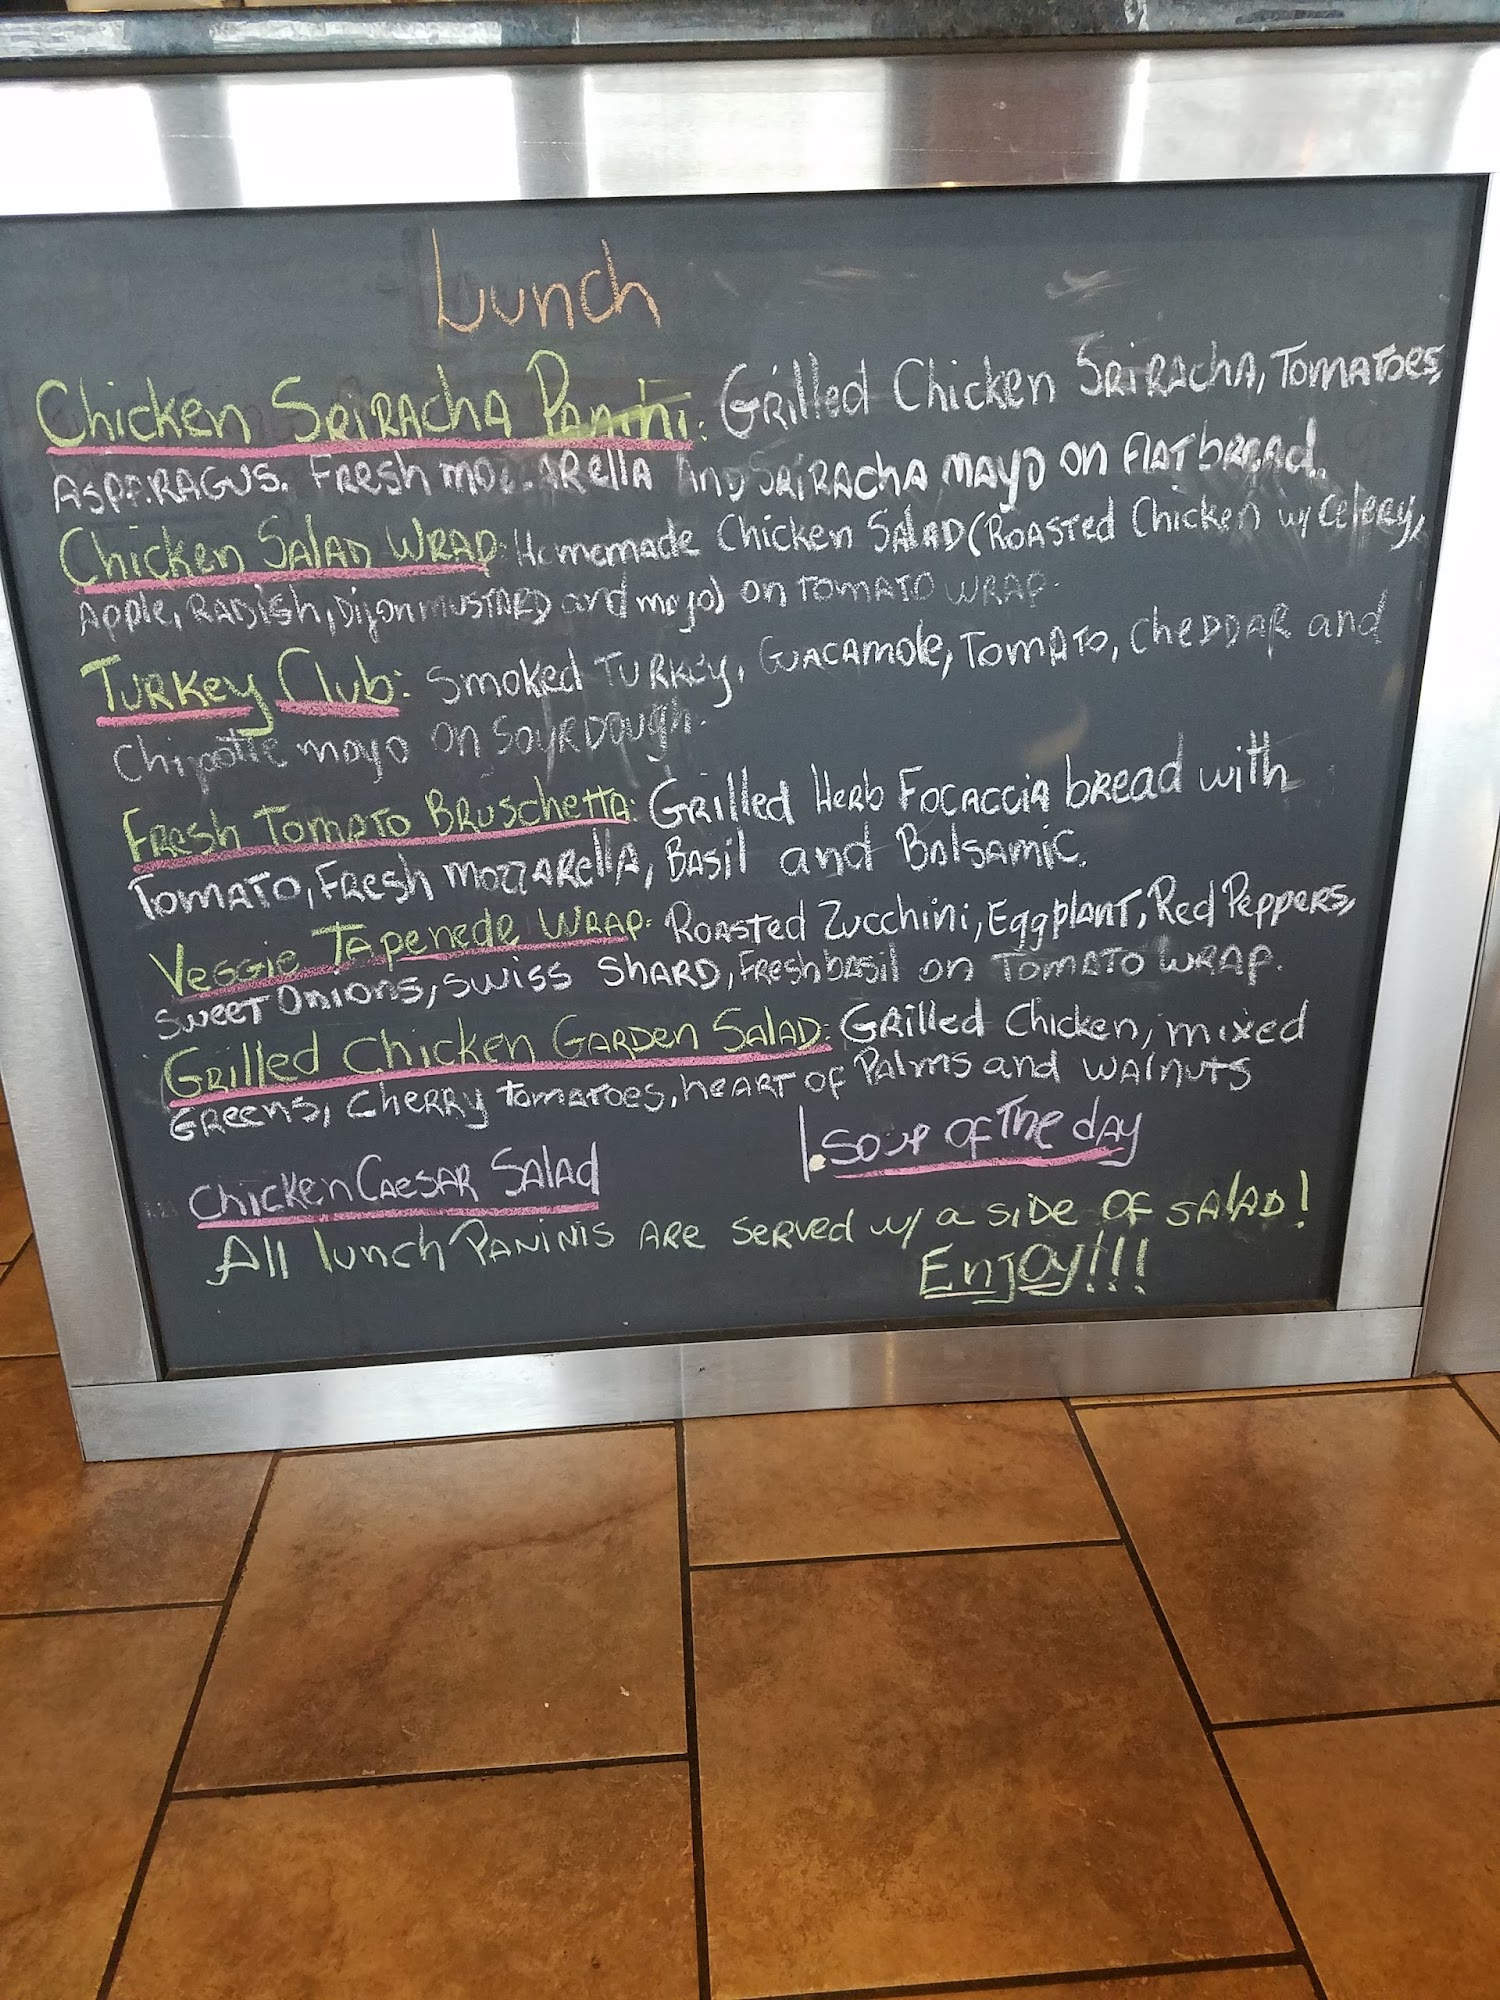 Lunch
Chicken Sriracha Panini: Grilled Chicken Sriracha, Tomatoes,
Asparagus. Fresh mozzarella And Sriracha mayo on Flat bread.
Chicken Salad Wrap: Homemade Chicken Salad (Roasted Chicken w/ Celery,
Apple, Radish, Dijon mustard and mayo) on Tomato wrap.
Turkey Club: Smoked Turkey, Guacamole, Tomato, Cheddar and
Chipotle mayo on Sourdough.
Fresh Tomato Bruschetta: Grilled Herb Focaccia bread with
Tomato, Fresh mozzarella, Basil and Balsamic.
Veggie Tapenede Wrap: Roasted Zucchini, Eggplant, Red Peppers,
Sweet Onions, Swiss Shard, Fresh basil on Tomato wrap.
Grilled Chicken Garden Salad: Grilled Chicken, mixed
Greens, Cherry tomatoes, heart of Palms and walnuts
Chicken Caesar Salad
Soup of the day
All lunch Paninis are served w/ a side of salad!
Enjoy!!!